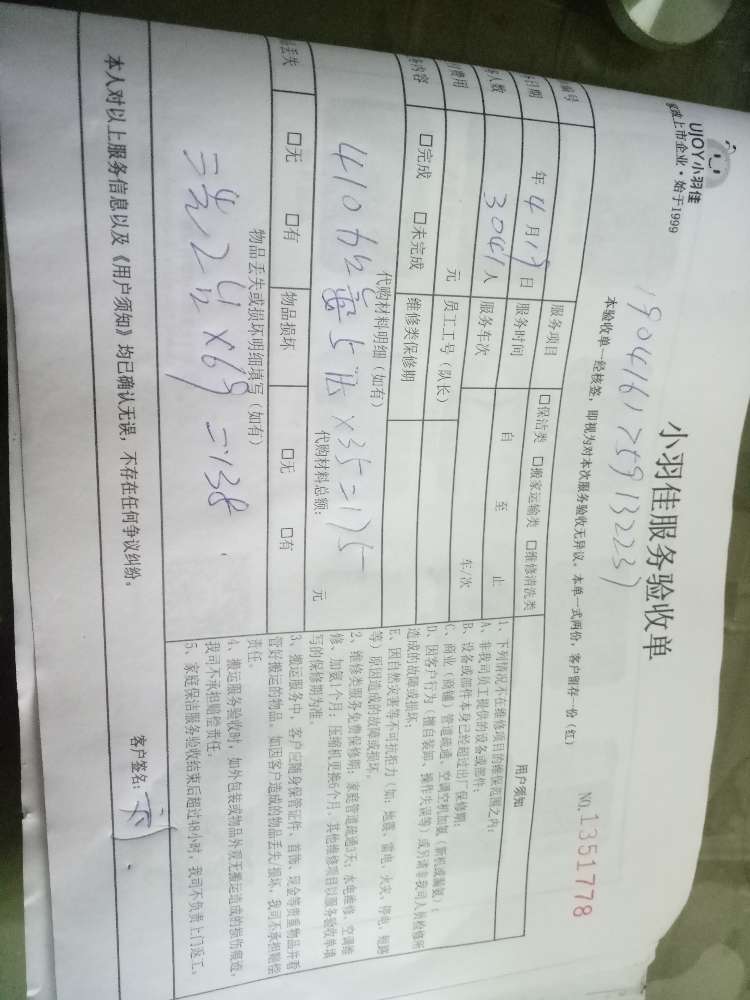 UJOY小羽佳
家政上市企业·始于1999
小羽佳服务验收单
19041617591322
本验收单一经核签，即视为对本次服务验收无异议。本单一式两份，客户留存一份（红）
NO.1351778
编号
服务项目
□保洁类 □搬家运输类 □维修清洗类
日期
年 4月17日
服务时间
自 至 止
人数
3041人
服务车次
车/次
费用
元
员工工号（队长）
内容
□完成 □未完成
维修类保修期
代购材料明细（如有）
410
×35=175
代购材料总额： 元
丢失
□无 □有
物品损坏
□无 □有
物品丢失或损坏明细填写（如有）
×69=138
用户须知
1、下列情况不在维修项目的维保范围之内：
A、非我司员工提供的设备或部件；
B、设备或部件本身已经超过出厂保修期；
C、商业（商铺）管道疏通、空调空机加氨（新机或漏氨）；
D、因客户行为（擅自装卸、操作失误等）或另请非我司人员检修所
造成的故障或损坏；
E、因自然灾害等不可抗拒力（如：地震、雷电、火灾、停电、短路
等）原因造成的故障或损坏。
2、维修类服务免费保修期：家庭管道疏通3天；水电维修、空调维
修、加氨1个月；压缩机更换6个月，其他维修项目以服务验收单填
写的保修期为准。
3、搬运服务中，客户应随身保管证件、首饰、现金等贵重物品并看
管好搬运的物品，如因客户造成的物品丢失/损坏，我司不承担赔偿
责任。
4、搬运服务验收时，如外包装或物品外观无搬运造成的损伤痕迹，
我司不承担赔偿责任。
5、家庭保洁服务验收结束后超过48小时，我司不负责上门返工。
本人对以上服务信息以及《用户须知》均已确认无误，不存在任何争议纠纷。
客户签名：